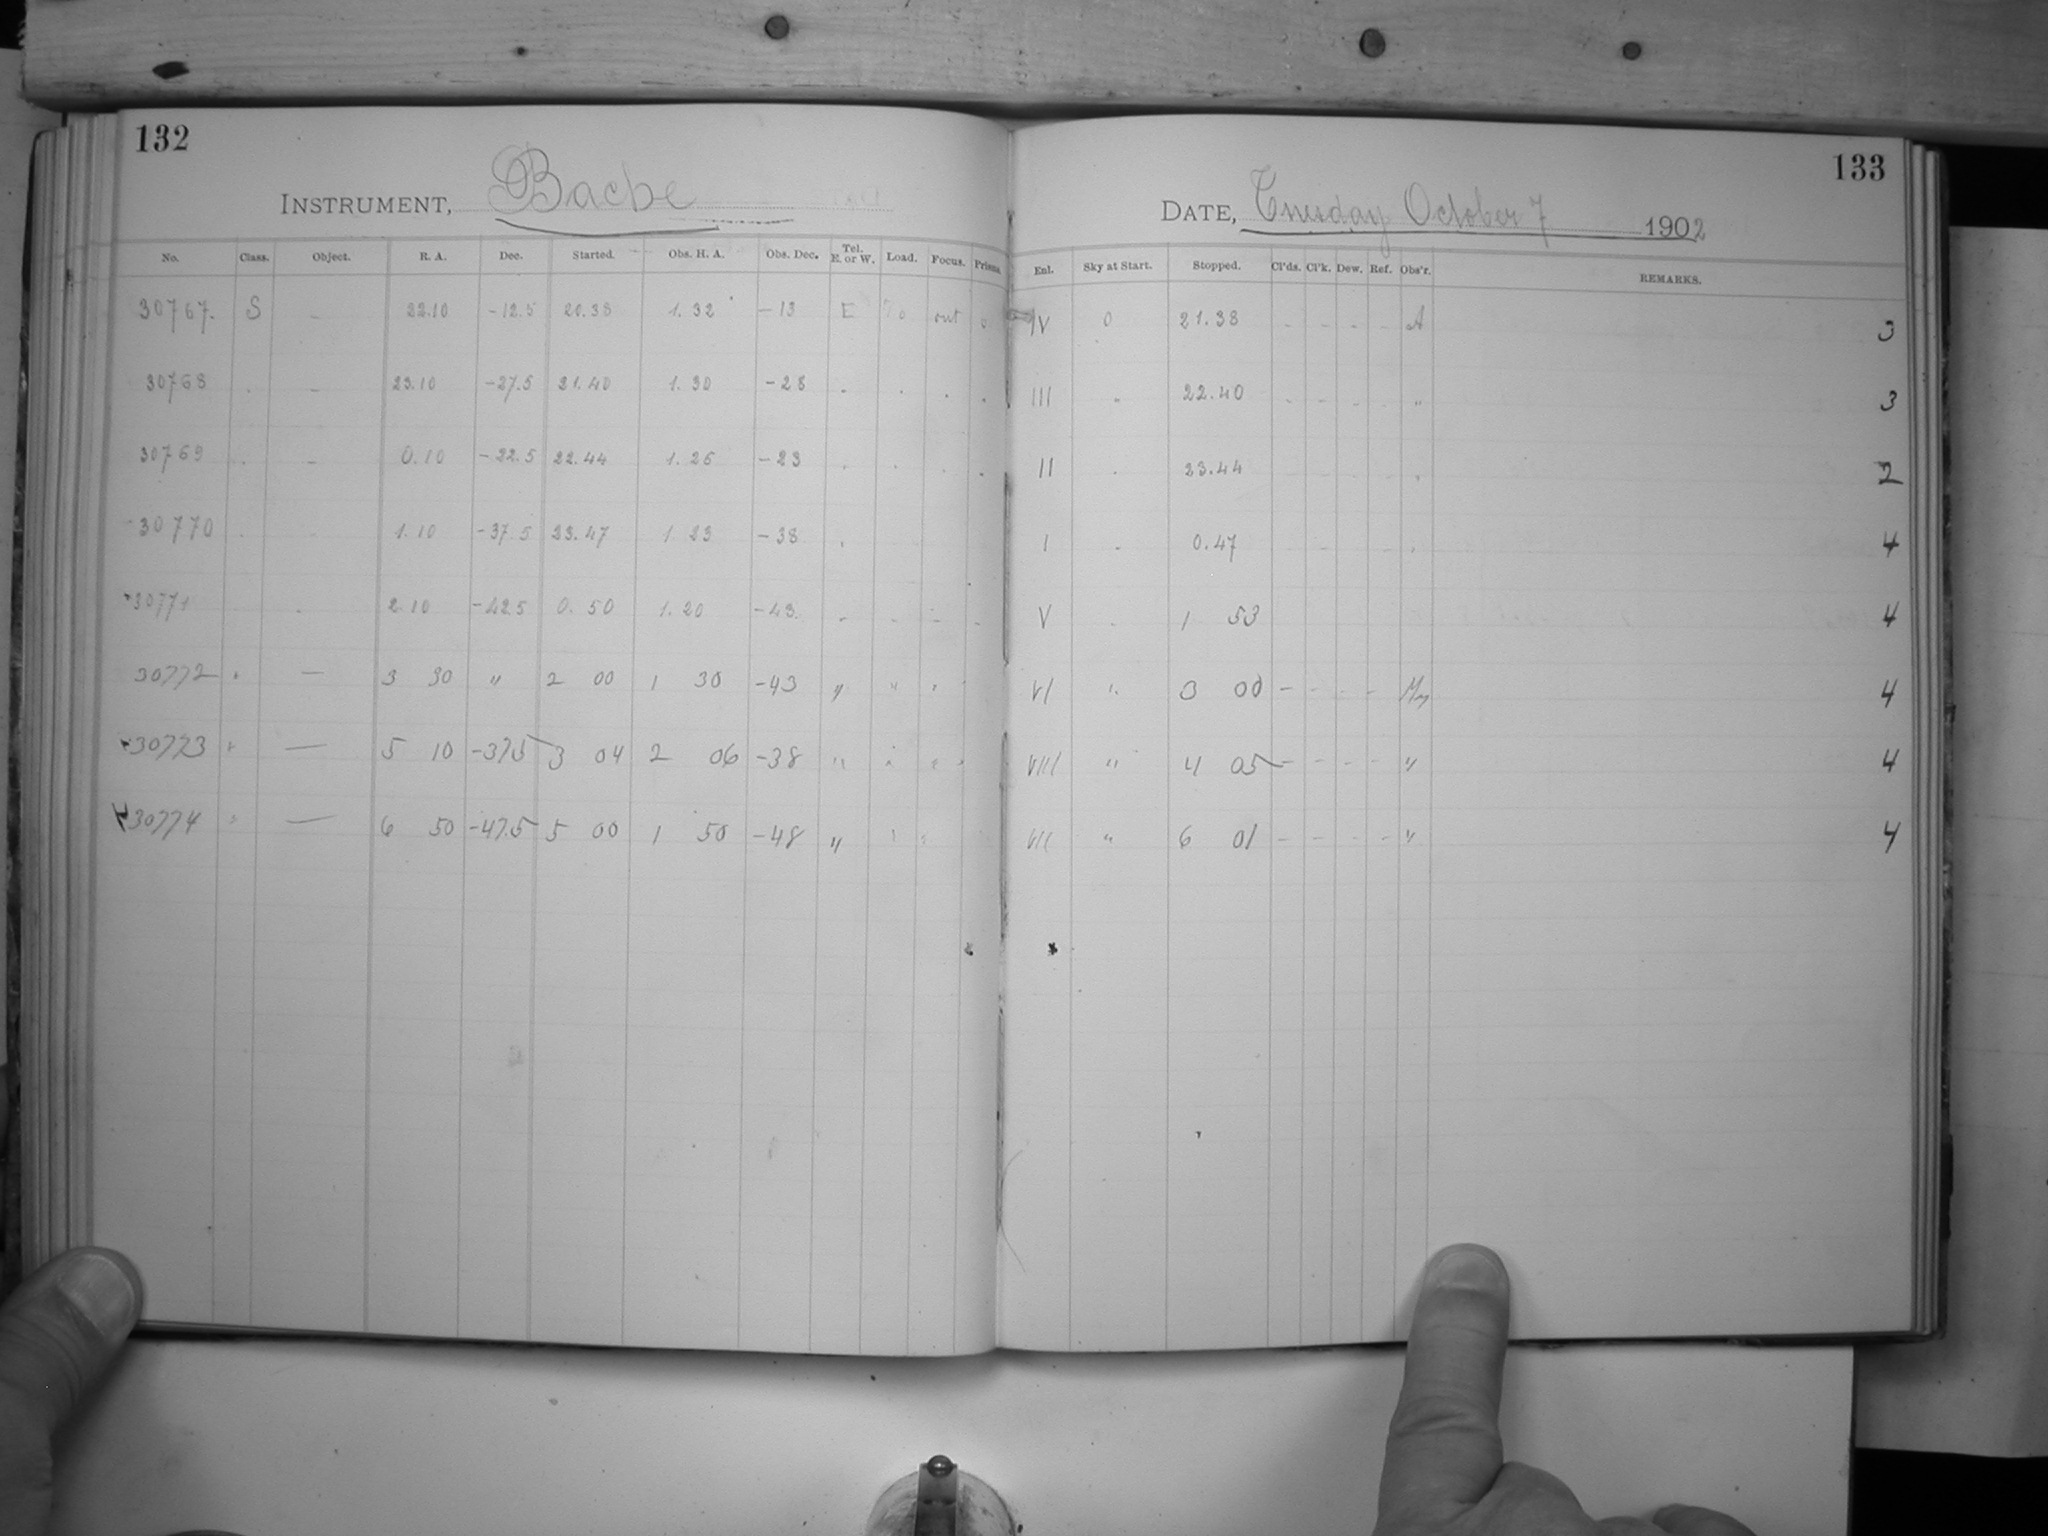 132
INSTRUMENT, Bache
No. Class. Object. R. A. Dec. Started. Obs. H. A. Obs. Dec. Tel. E. or W. Load. Focus. Prisms.
30767. S – 22.10 -12.5 20.38 1.32 -13 E out 0
30768 . – 23.10 -27.5 21.40 1.30 -28 . . . .
30769 . – 0.10 -22.5 22.44 1.26 -23 . . . .
30770 . – 1.10 -37.5 23.47 1 23 -38 .
30771 . 2.10 -42.5 0.50 1.20 -43 „ – – –
30772 " — 3 30 " 2 00 1 30 -43 " " " "
30773 " — 5 10 -37.5 3 04 2 06 -38 " " " "
30774 " — 6 50 -47.5 5 00 1 50 -48 " " "
133
DATE, Tuesday October 7 1902
Enl. Sky at Start. Stopped. Cl'ds. Cl'k. Dew. Ref. Obs'r. REMARKS.
IV 0 21.38 - - - - A 3
III " 22.40 - - - - " 3
II . 23.44 - - - - . 2
I . 0.47 - - - - . 4
V . 1 53 4
VI " 3 00 - - - - 4
VIII " 4 05 - - - - " 4
VII " 6 01 - - - - " 4